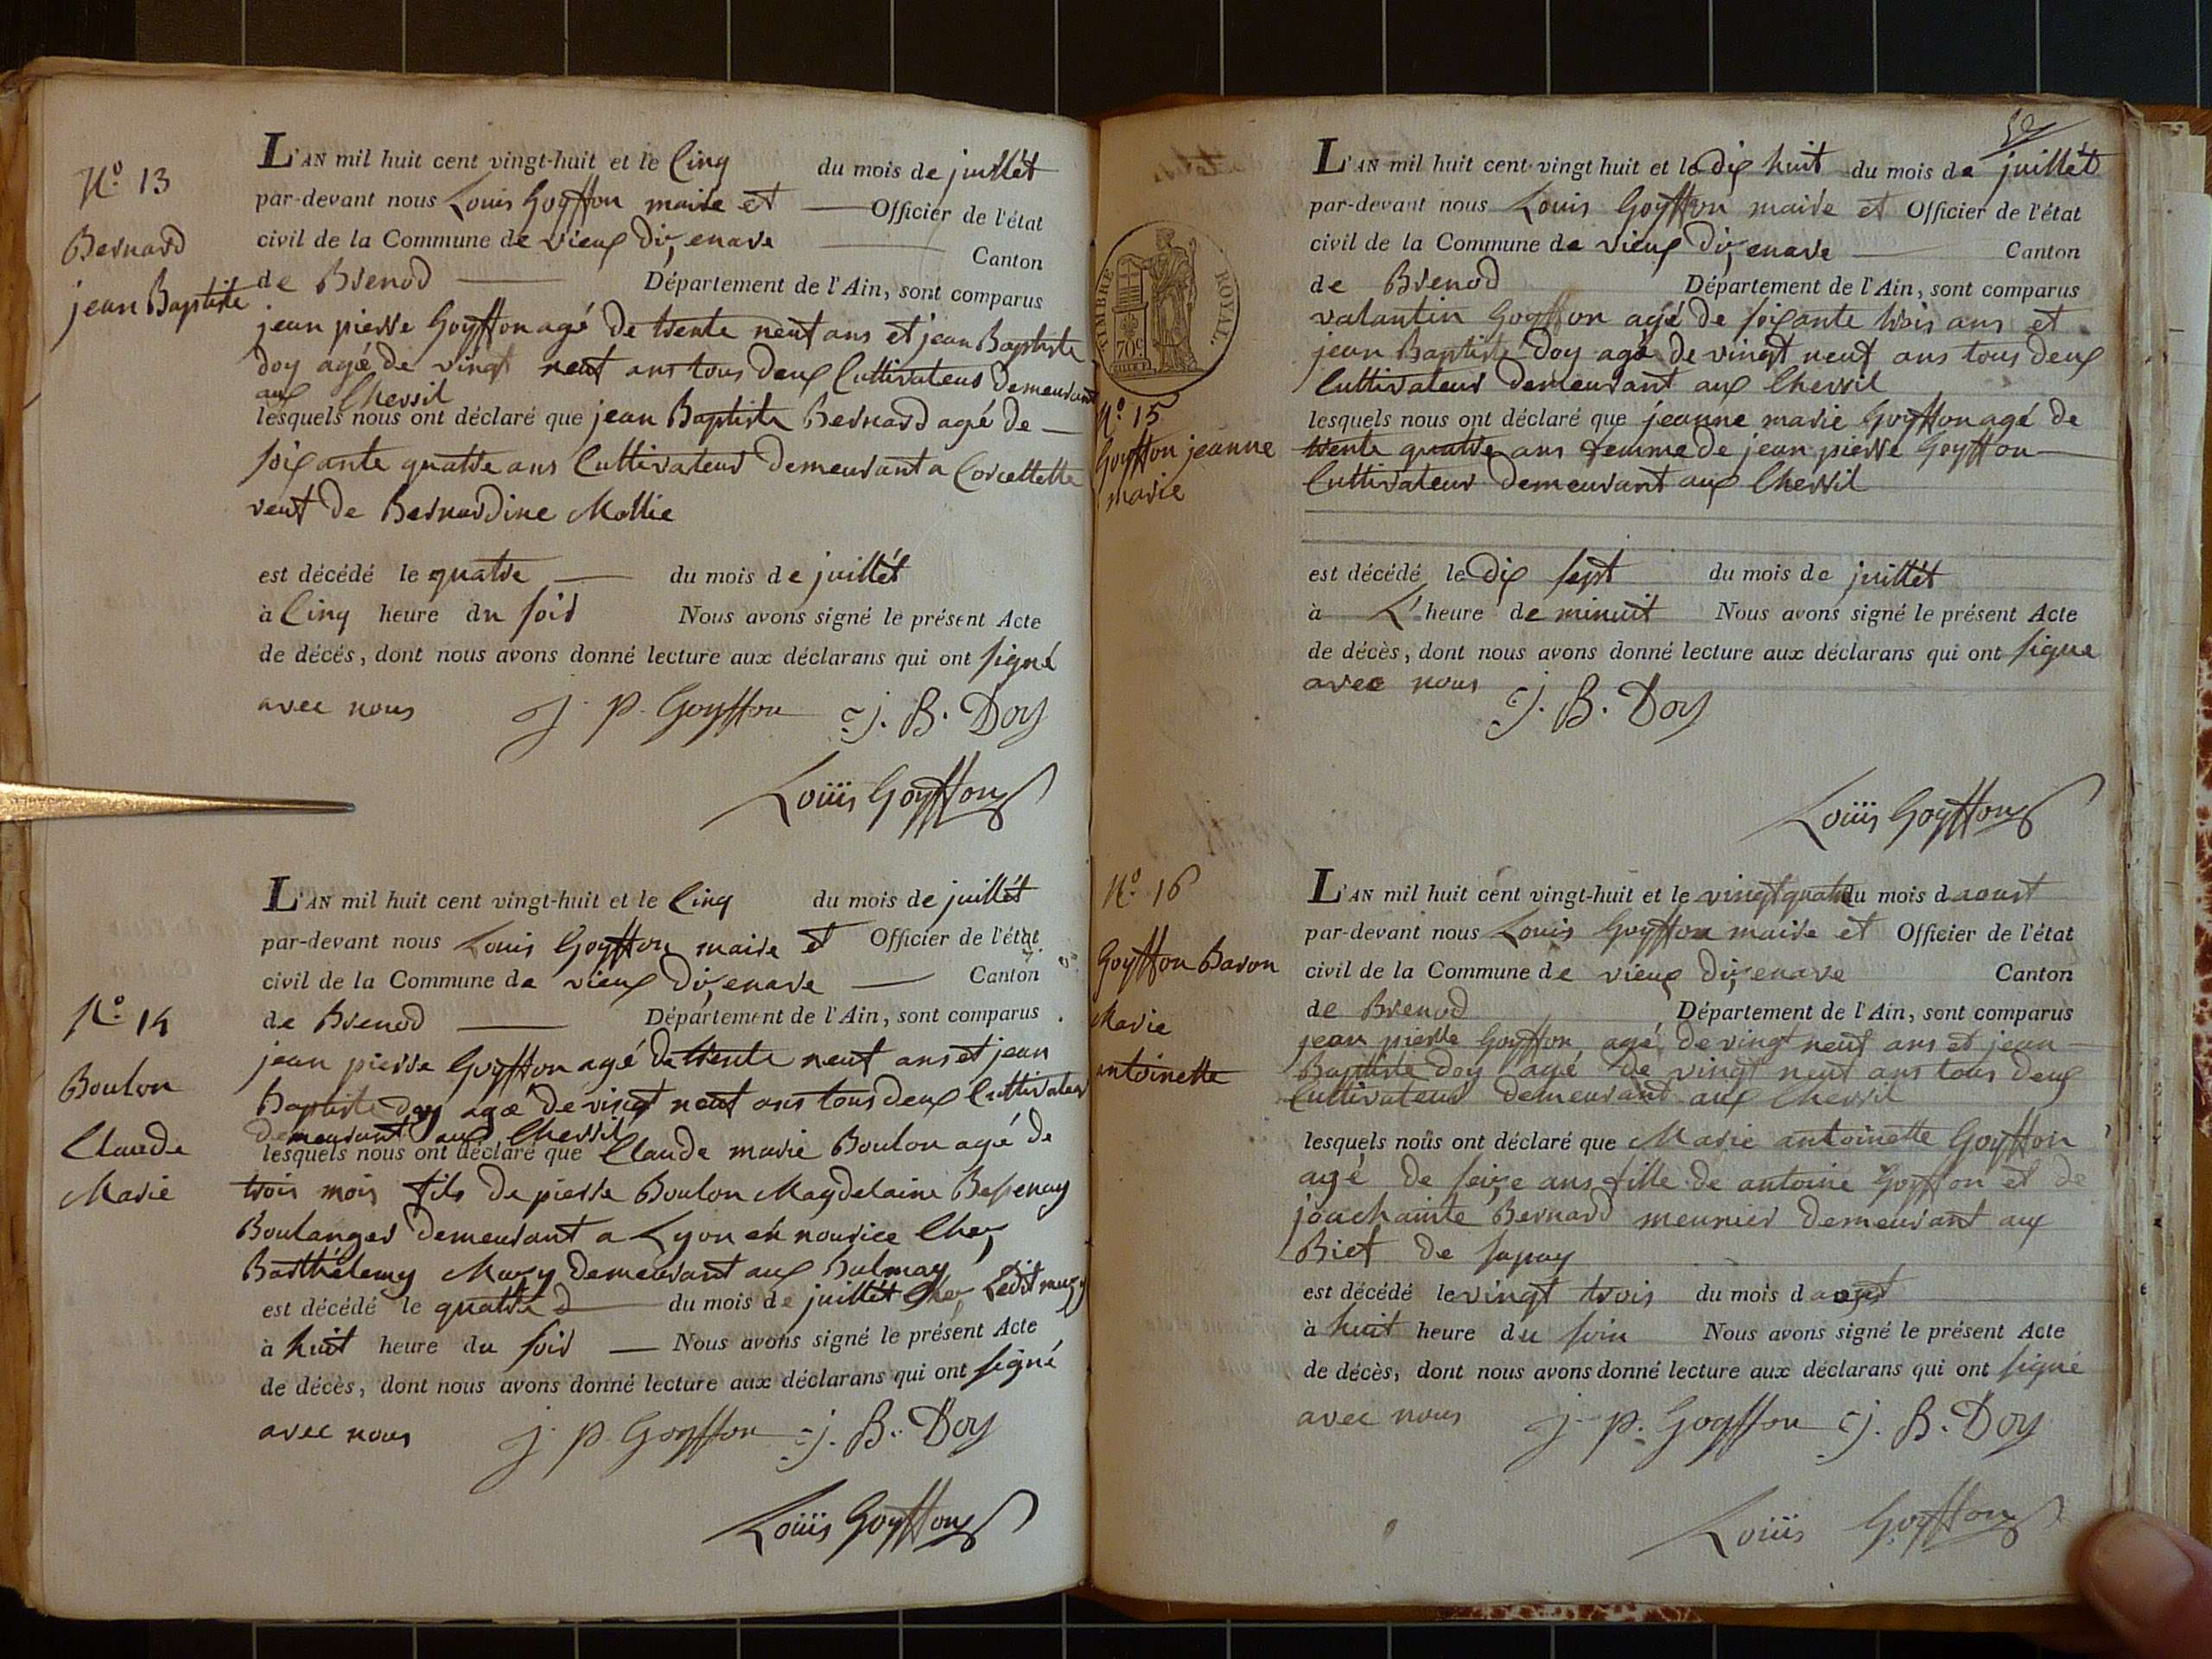 N.° 13
Bernard
jean Baptiste
L'AN mil huit cent vingt-huit et le Cinq du mois de juillét
par-devant nous Louis Goyffon maire et Officier de l'état
civil de la Commune de vieux d'izenave Canton
de Brenod Département de l'Ain, sont comparus
jean pierre Goyffon agé de trente neuf ans et jean Baptiste
Doy agé de vingt neuf ans tous deux Cultivateurs demeurant
aux Chevril
lesquels nous ont déclaré que jean Baptiste Bernard agé de
soixante quatre ans Cultivateur demeurant a Corcellette
veuf de Bernardine Mollie
est décédé le quatre du mois de juillét
à Cinq heure du soir Nous avons signé le présent Acte
de décés, dont nous avons donné lecture aux déclarans qui ont signé
avec nous J. P. Goyffon J. B. Doy
Loüis Goyffon
N.° 14
Boulon
Claude
Marie
L'AN mil huit cent vingt-huit et le Cinq du mois de juillét
par-devant nous Louis Goyffon maire et Officier de l'état
civil de la Commune de vieux d'izenave Canton
de Brenod Département de l'Ain, sont comparus
jean pierre Goyffon agé de trente neuf ans et jean
Baptiste Doy agé de vingt neuf ans tous deux Cultivateur
demeurant aux Chevril
lesquels nous ont déclaré que Claude marie Boulon agé de
trois mois fils de pierre Boulon Magdelaine
Boulanger demeurant a Lyon en nourice Chez
Barthélemy Mury demeurant aux Balmay
est décédé le quatre du mois de juillét Chez Ledit mury
à huit heure du soir Nous avons signé le présent Acte
de décès, dont nous avons donné lecture aux déclarans qui ont signé
avec nous J. P. Goyffon J. B. Doy
Loüis Goyffon
TIMBRE ROYAL.
70c
N.° 15
Goyffon jeanne
marie
L'AN mil huit cent vingt huit et le dix huit du mois de juillét
par-devant nous Louis Goyffon maire et Officier de l'état
civil de la Commune de vieux d'izenave Canton
de Brenod Département de l'Ain, sont comparus
valantin Goyffon agé de soixante trois ans et
jean Baptiste Doy agé de vingt neuf ans tous deux
Cultivateur demeurant aux Chevril
lesquels nous ont déclaré que jeanne marie Goyffon agé de
trente quatre ans femme de jean pierre Goyffon
Cultivateur demeurant aux Chevril
est décédé le dix sept du mois de juillét
à L'heure de minuit Nous avons signé le présent Acte
de décès, dont nous avons donné lecture aux déclarans qui ont signé
avec nous J. B. Doy
Loüis Goyffon
N.° 16
Goyffon Baron
Marie
antoinette
L'AN mil huit cent vingt-huit et le vingt quatre du mois d aoust
par-devant nous Louis Goyffon maire et Officier de l'état
civil de la Commune de vieux d'izenave Canton
de Brenod Département de l'Ain, sont comparus
jean pierre Goyffon agé de vingt neuf ans et jean
Baptiste Doy agé de vingt neuf ans tous deux
Cultivateur demeurant aux Chevril
lesquels nous ont déclaré que Marie antoinette Goyffon
agé de seize ans fille de antoine Goyffon et de
jouachainte Bernard meunier demeurant aux
Bief de
est décédé le vingt trois du mois d aoust
à huit heure du soir Nous avons signé le présent Acte
de décès, dont nous avons donné lecture aux déclarans qui ont signé
avec nous J. P. Goyffon J. B. Doy
Loüis Goyffon